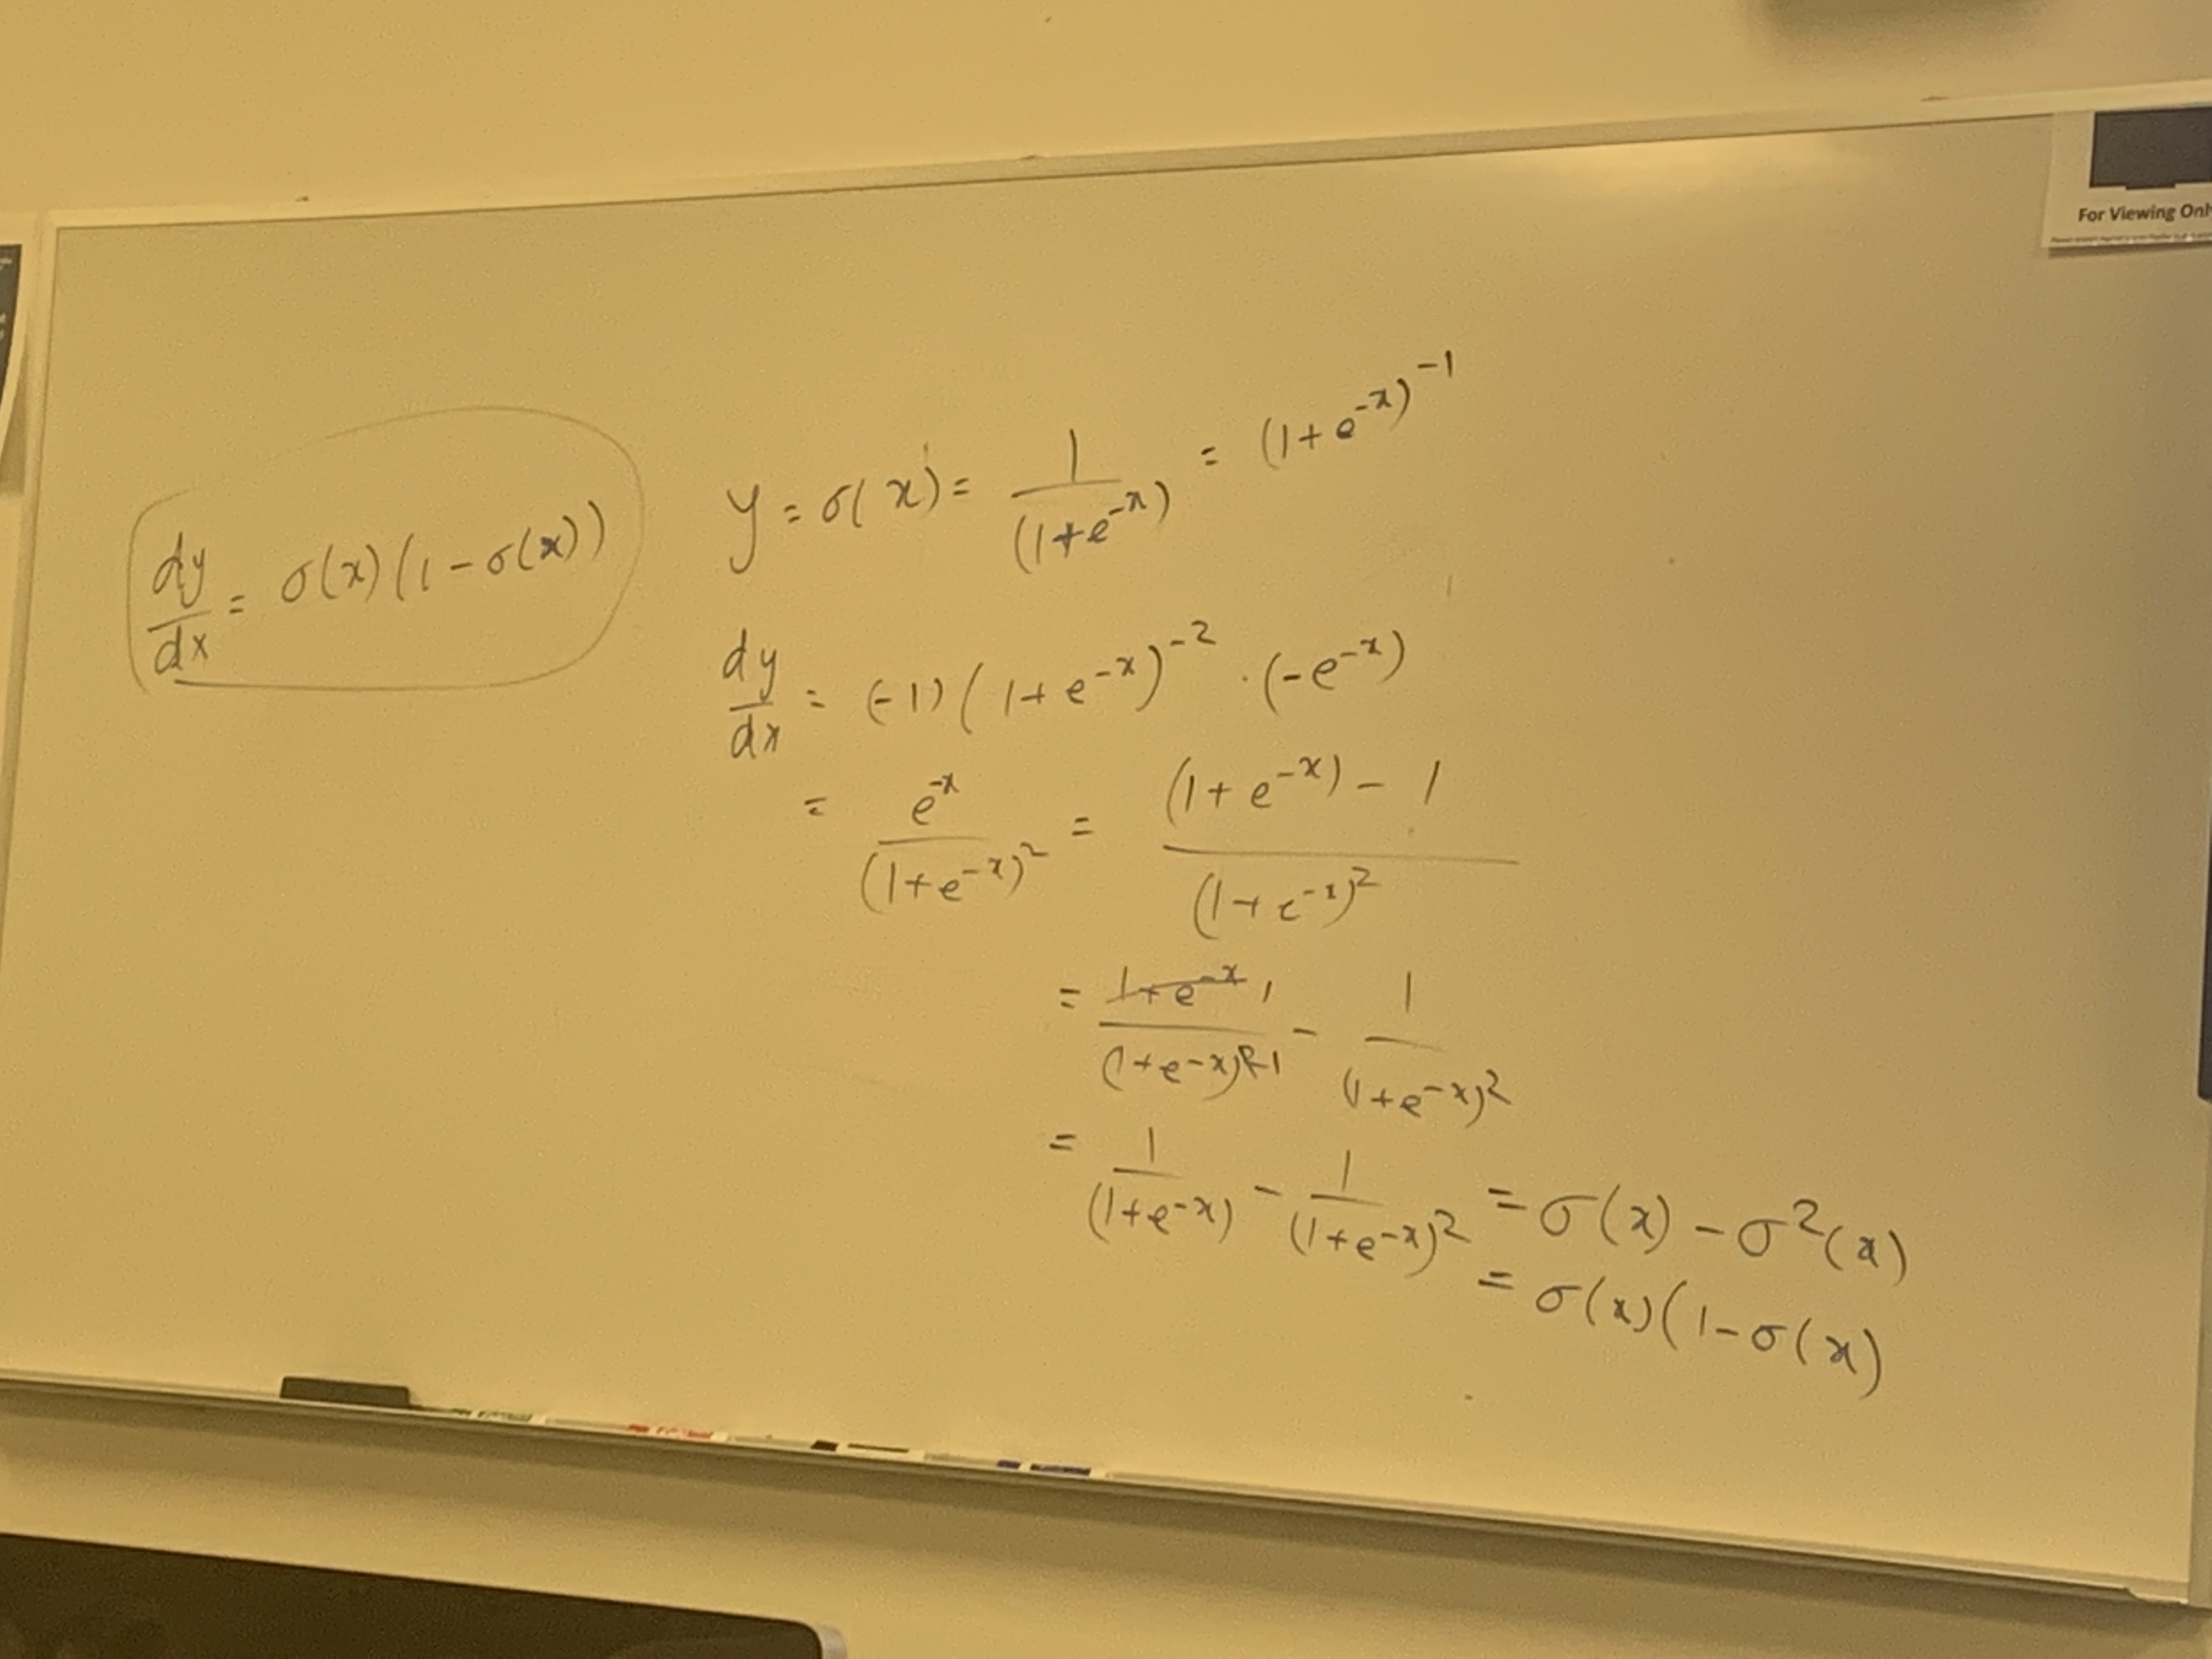 For Viewing Onl
dy/dx = σ(x)(1-σ(x))
y = σ(x) = 1/(1+e^-x) = (1+e^-x)^-1
dy/dx = (-1)(1+e^-x)^-2 · (-e^-x)
= e^-x/(1+e^-x)^2 = (1+e^-x)-1/(1+e^-x)^2
= 1+e^-x 1/(1+e^-x)^2-1 - 1/(1+e^-x)^2
= 1/(1+e^-x) - 1/(1+e^-x)^2 = σ(x) - σ^2(x)
= σ(x)(1-σ(x)